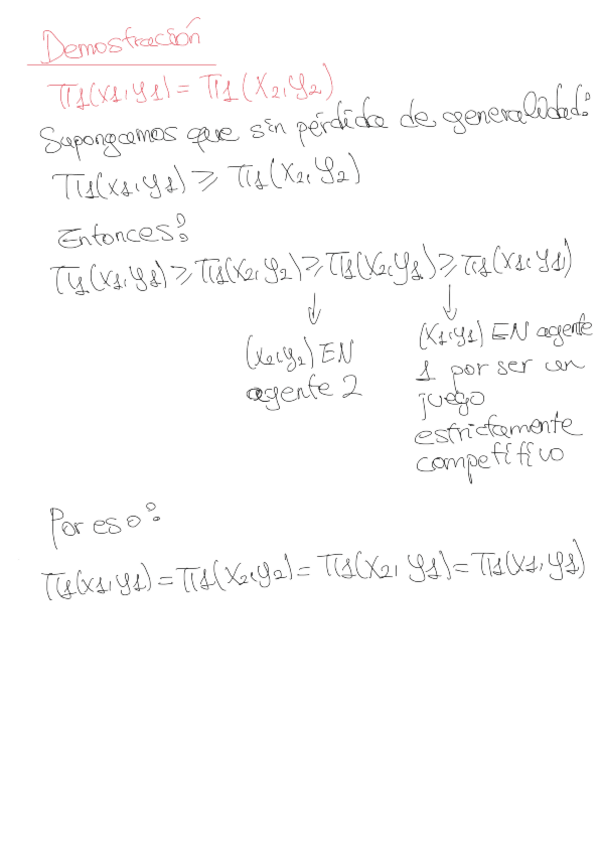 Demostración
π1(x1,y1) = π1(x2,y2)
Supongamos que sin pérdida de generalidad:
π1(x1,y1) ⩾ π1(x2,y2)
Entonces:
π1(x1,y1) ⩾ π1(x2,y2) ⩾ π1(x2,y1) ⩾ π1(x1,y1)
↓ ↓
(x2,y2) EN
agente 2
(x1,y1) EN agente
1 por ser un
juego
estrictamente
competitivo
Por eso:
π1(x1,y1) = π1(x2,y2) = π1(x2,y1) = π1(x1,y1)